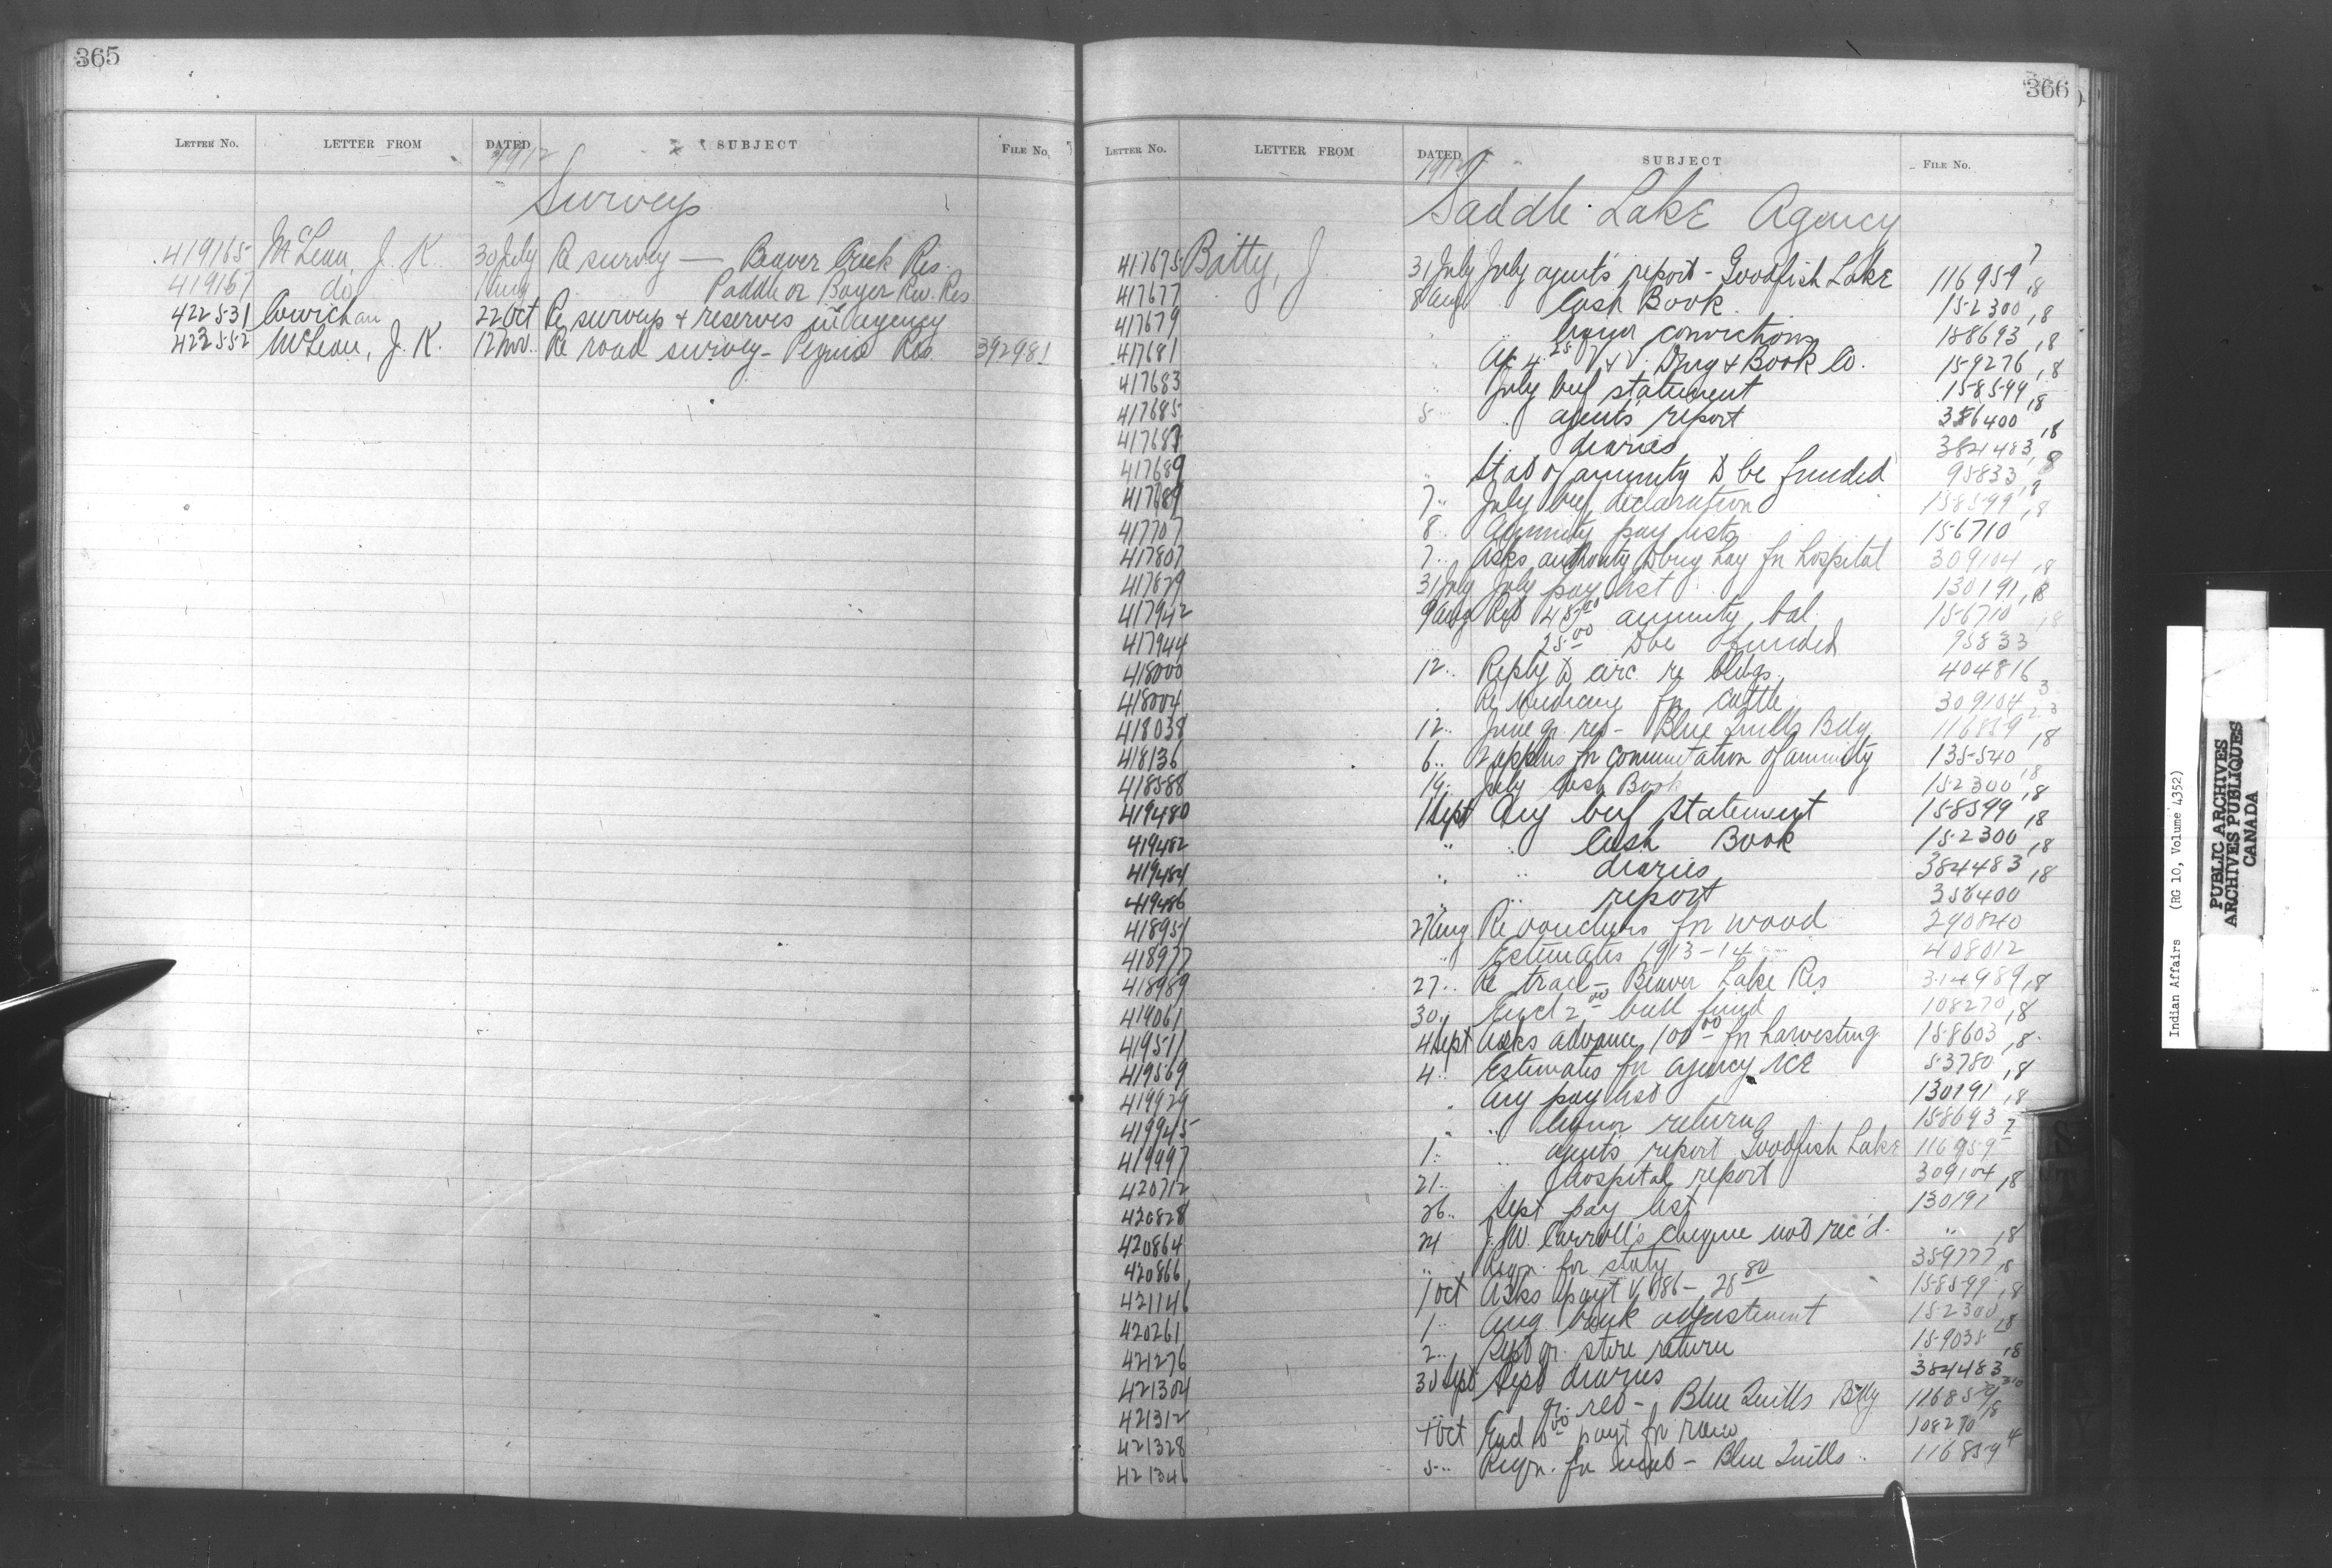 365
LETTER NO. LETTER FROM DATED SUBJECT FILE NO.
1912
Surveys
419165 McLean J. K. 30 July Re survey — Beaver Creek Res.
419167 do 1 Aug Paddle or Boyer Riv. Res
422531 Cowichan 22 Oct Re surveys & reserves in agency
422552 McLean, J. K. 12 Nov. Re road survey - Peguis Res. 392981
366
LETTER NO. LETTER FROM DATED SUBJECT FILE NO.
1912
Saddle Lake Agency
417675 Batty, J 31 July July agent's report - Goodfish Lake 116959 7
417677 8 Aug Cash Book 152300,8
417679 " liquor convictions 158693,8
417681 " Drug & Book Co. 159276,8
417683 July beef statement 158599,8
417685 5 " agents' report 356400,8
417687 diaries 384483,8
417689 " annuity to be funded 95833,8
417689 7 " July beef declaration 158599,8
417707 8 Annuity pay lists 156710
417807 7 " Asks authority to buy hay for hospital 309104,8
417879 31 July July pay list 130191,8
417942 9 Aug annuity bal. 156710,8
417944 25.00 funded 95833
418000 12 " Reply to circ. re bldgs. 404816
418004 Re medicine for cattle 309104 3
418038 12 " June qr. ret - Blue Quills Bdg 116859 23
418136 6 " 2 applns for commutation of annuity 135540,8
418588 July Cash Book 152300,8
419480 1 Sept Aug beef statement 158599,8
419482 " " Cash Book 152300,8
419484 " " diaries 384483,8
419486 " " report 356400
418951 27 Aug Re vouchers for wood 290840
418977 " Estimates 1913-14 408012
418989 27 " Re trail - Beaver Lake Res 314989,8
419061 30 " Encl 2.00 bull fund 108270,8
419511 4 Sept Asks advance 100.00 for harvesting 158603,8
419569 4 " Estimates for agency ice 53780,8
419929 " Aug pay list 130191,8
419945 " " liquor return 158693
419997 1 " " agents' report Goodfish Lake 116959 7
420712 21 " " Hospital report 309104,8
420828 26 " Sept pay list 130191
420864 24 J.W. Carroll's cheque not rec'd. " ,8
420866 " Reqn. for staty 359777,8
421146 1 Oct Asks payt V.086 - 28.80 158599,8
420261 1 " Aug bank adjustment 152300,8
421276 2 " Sept qr. store return 159038,8
421304 30 Sept Sept diaries 384483
421312 " " qr. ret - Blue Quills Bdg 116859
421328 4 Oct payt for 108270,8
421346 5 " Reqn. for - Blue Quills " 116859 4
Indian Affairs (RG 10, Volume 4352)
PUBLIC ARCHIVES
ARCHIVES PUBLIQUES
CANADA